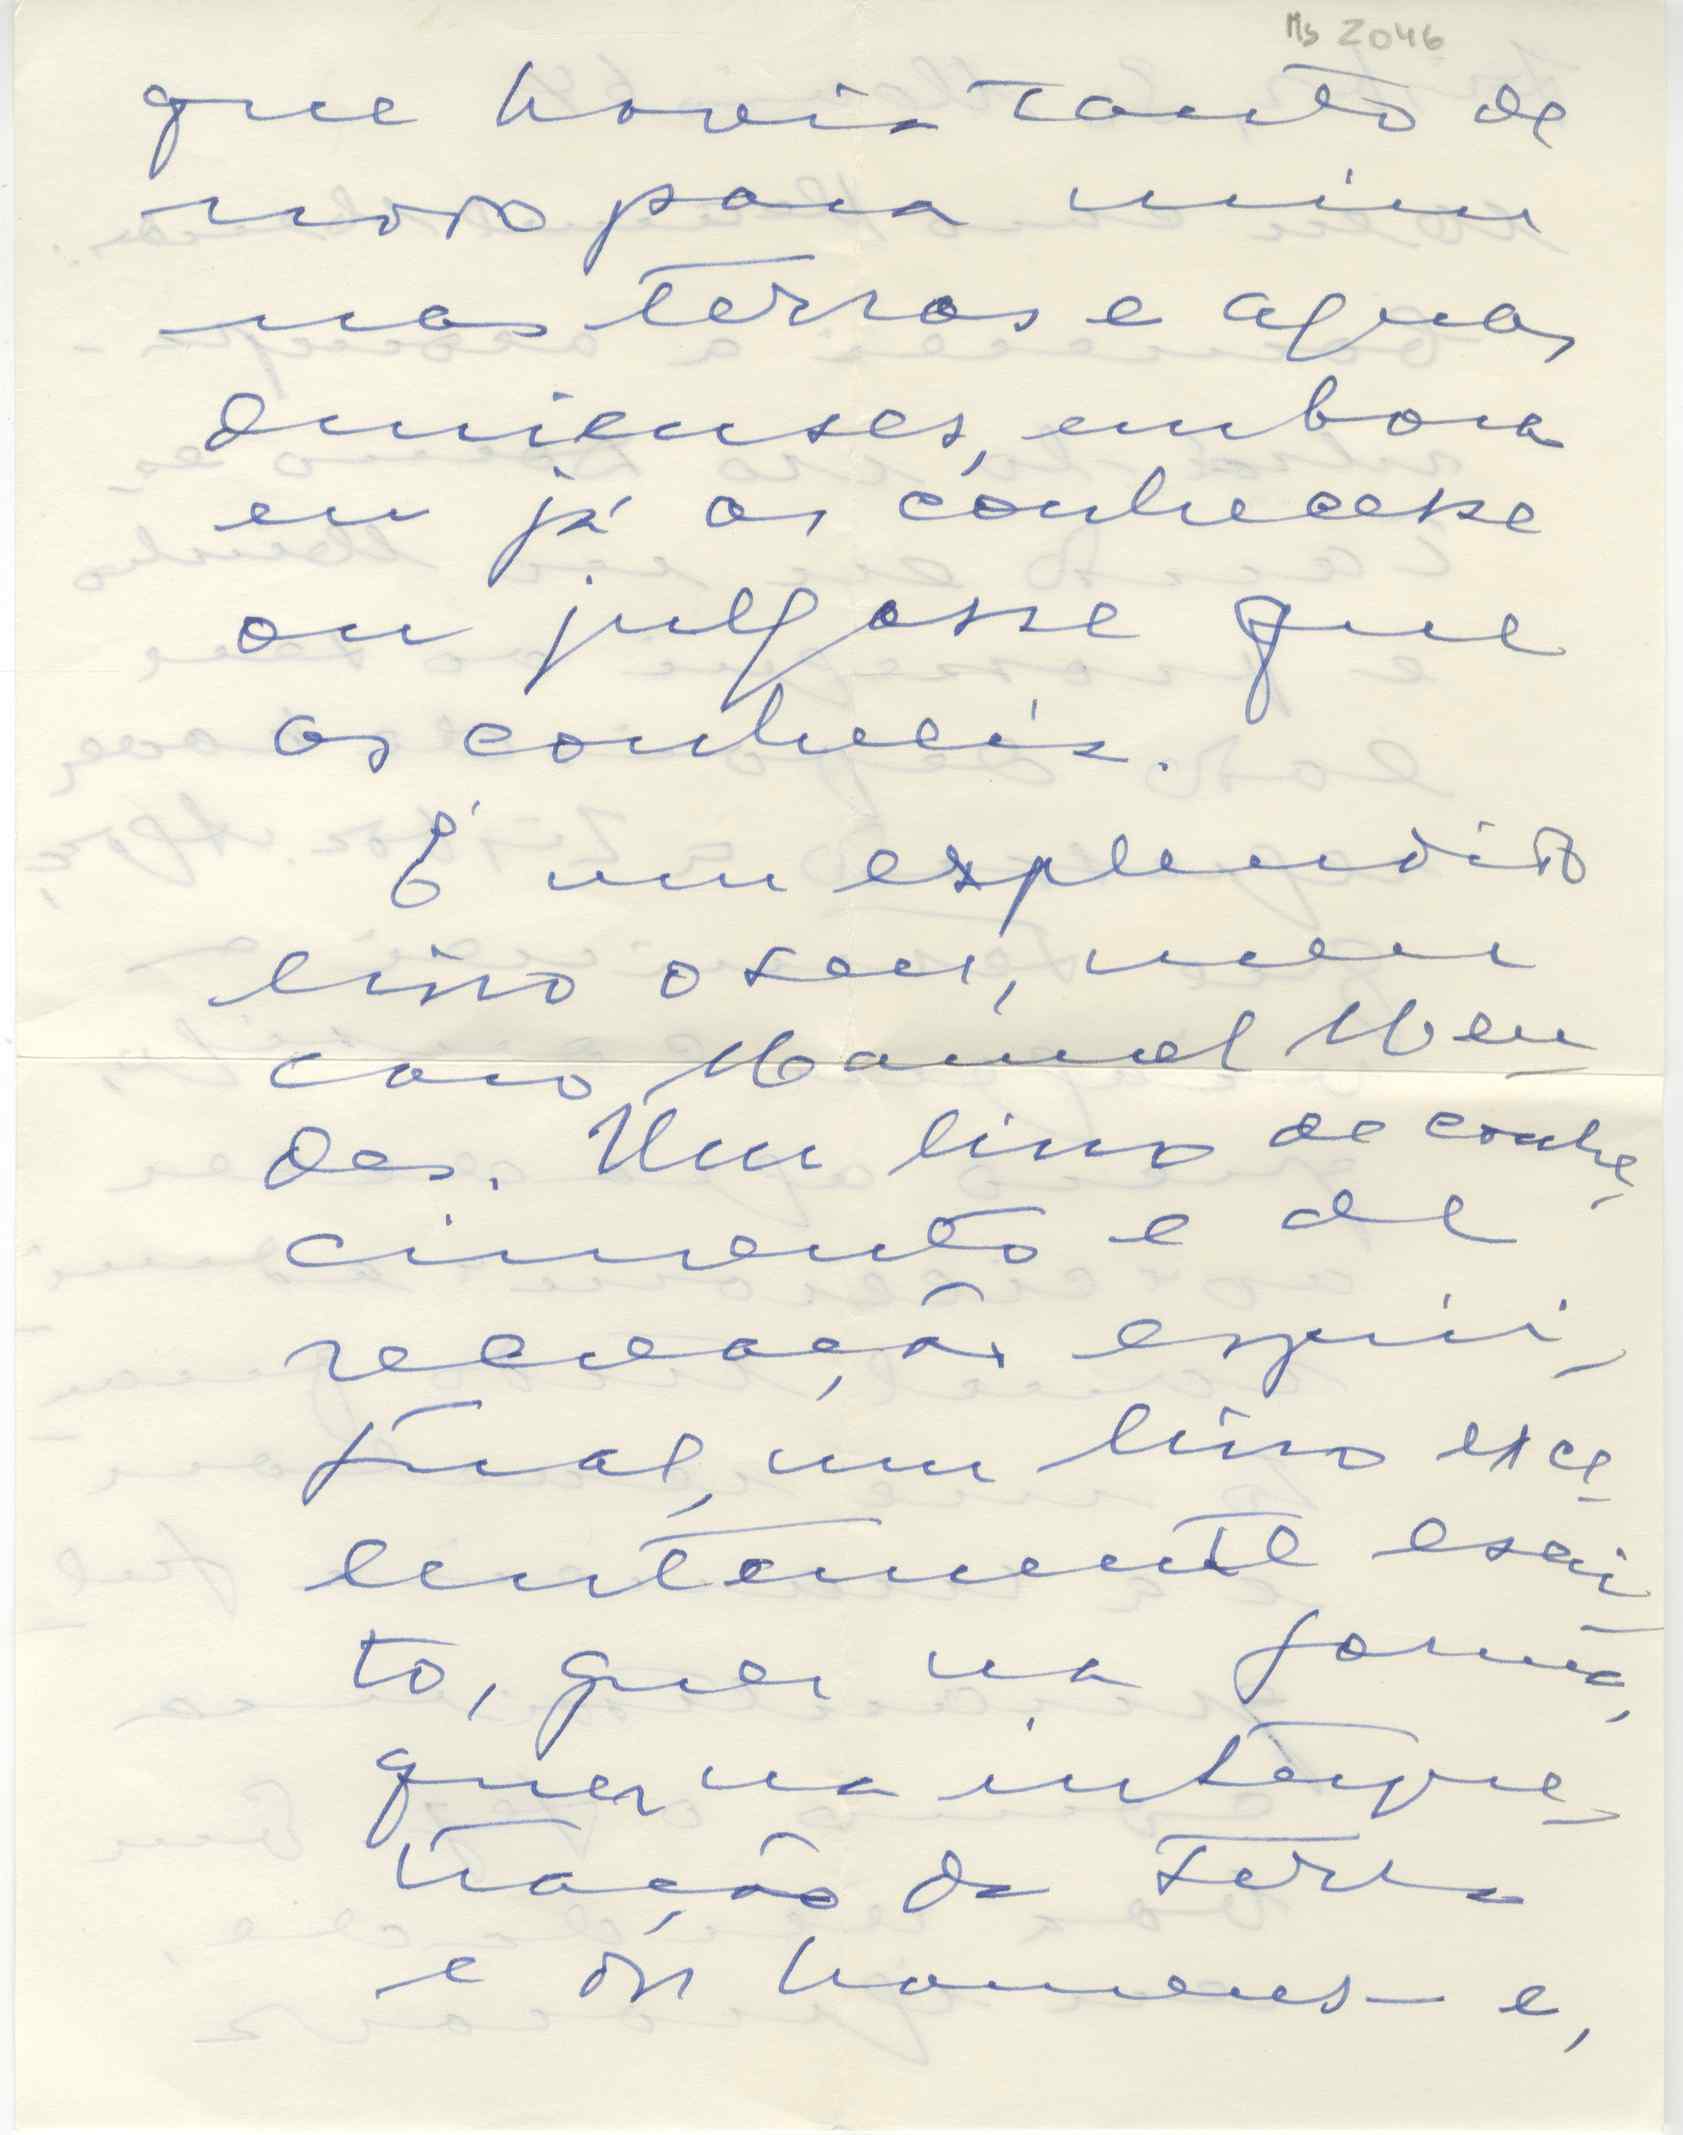 Ms 2046
que havia tanto de
novo para mim
nas terras e aguas
durienses, embora
eu já as conhecesse
ou julgasse que
as conhecia.
É um esplendido
livro o seu, meu
caro Manuel Men
des. Um livro de conhe
cimento e de
recreação espiri-
tual, um livro exce
lentemente escri
to, quer na forma,
quer na interpre-
tração da terra
e dos homens - e,